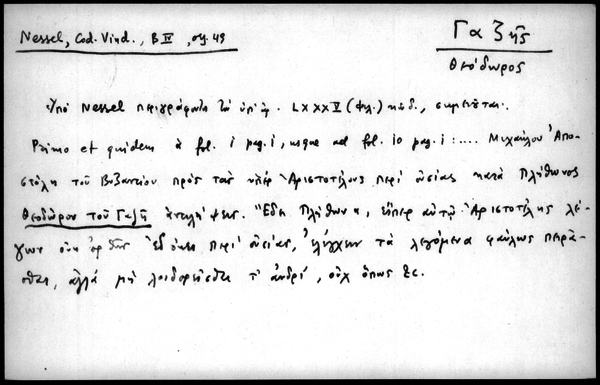 Nessel, Cod. Vind., B IV, σελ. 49
Γαζῆς
Θεόδωρος
Ὑπό Nessel περιγράφονται τὰ ὑπ' ἀρ. LXXXV (φιλ.) κώδ., σημειοῦται.
Primo et quidem à fol. 1 pag. 1, usque ad fol. 10 pag. 1: .... Μιχαήλου Ἀπο-
στόλη τοῦ Βυζαντίου πρὸς τὰς ὑπὲρ Ἀριστοτέλους περὶ οὐσίας κατὰ Πλήθωνος
Θεοδώρου τοῦ Γαζῆ ἀντιλήψεις. "Ἔδει Πλήθωνα, εἴπερ αὐτῷ Ἀριστοτέλης λέ-
γων οὐκ ὀρθῶς ἐδόκει περὶ οὐσίας, ἐλέγχειν τὰ λεγόμενα φαύλως πειρᾶ-
σθαι, ἀλλὰ μὴ λοιδορεῖσθαι τ' ἀνδρί, οὐχ ὅπως &c.